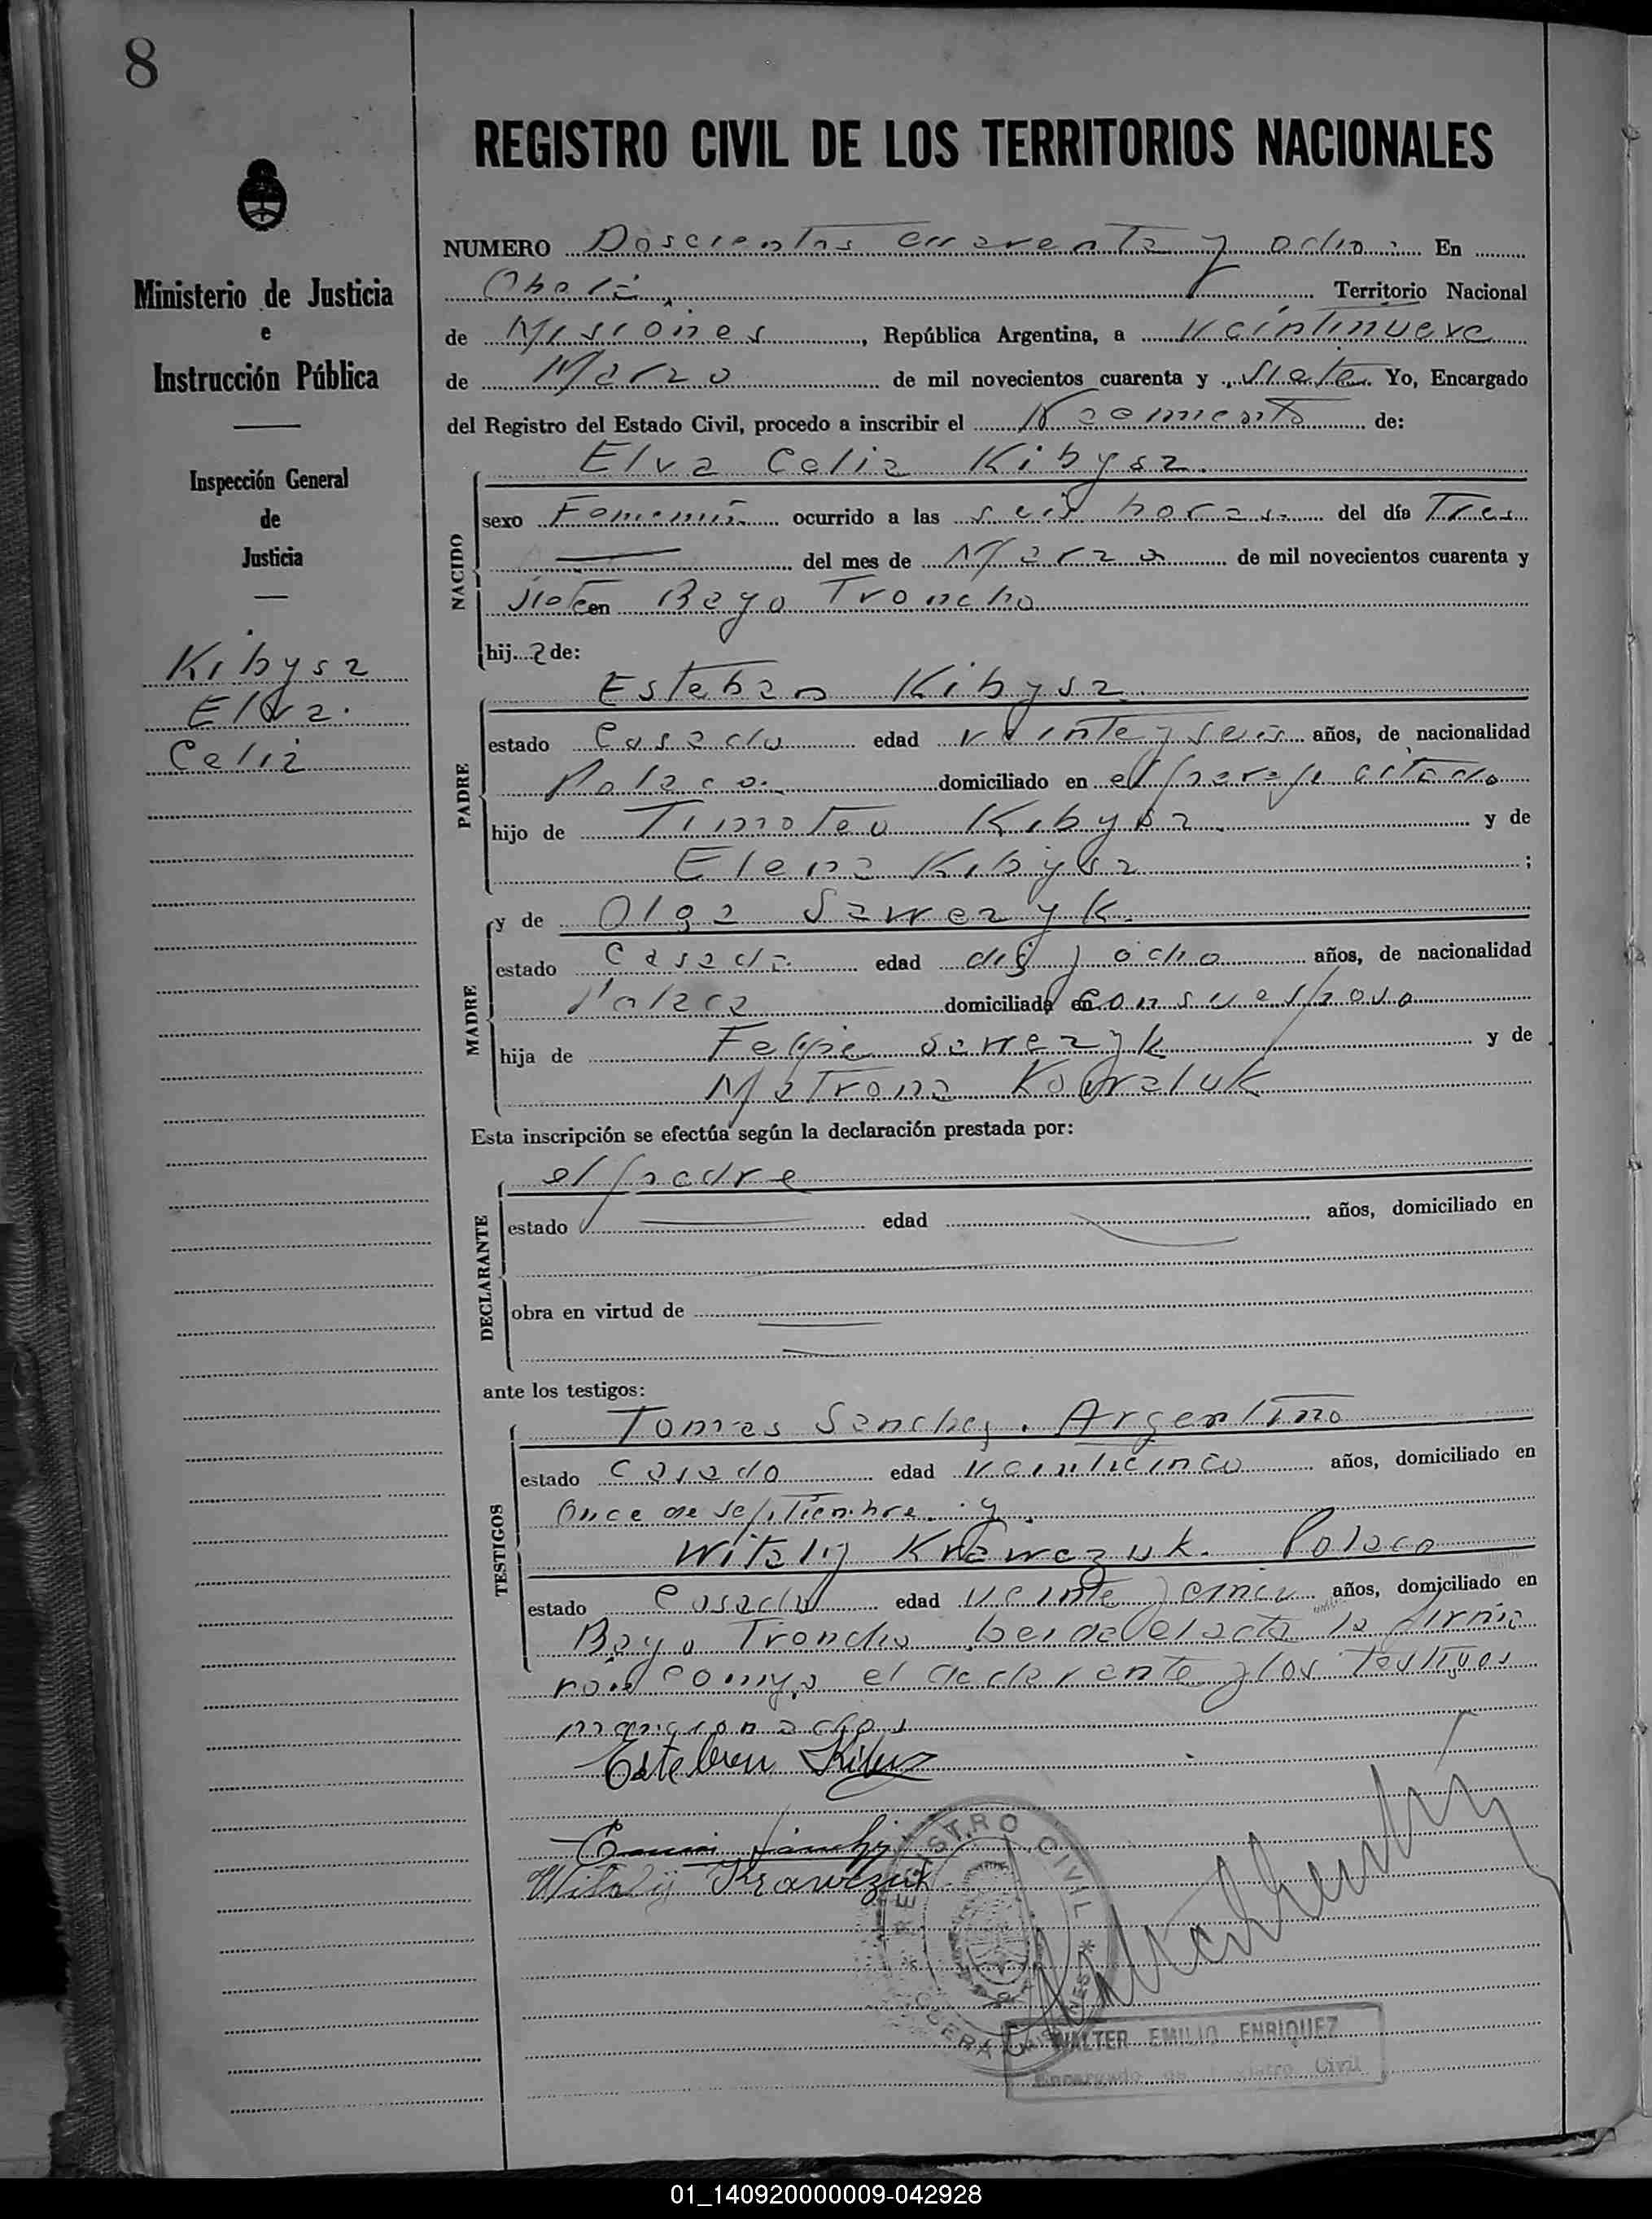 8
REGISTRO CIVIL DE LOS TERRITORIOS NACIONALES
Ministerio de Justicia
e
Instrucción Pública
Inspección General
de
Justicia
Kibysz
Elva
Celia
NUMERO Doscientos cuarenta y ocho. En
Oberá, Territorio Nacional
de Misiones, República Argentina, a Veintinueve
de Marzo de mil novecientos cuarenta y siete. Yo, Encargado
del Registro del Estado Civil, procedo a inscribir el Nacimiento de:
Elva Celia Kibysz.
NACIDO
sexo Femenino ocurrido a las seis horas. del día Tres
del mes de Marzo de mil novecientos cuarenta y
siete en Bayo Troncho
hija de:
Esteban Kibysz.
PADRE
estado Casado edad veinte y seis años, de nacionalidad
Polaco. domiciliado en el paraje citado
hijo de Timoteo Kibysz. y de
Elena Kibysz ;
y de Olga Sawczyk.
MADRE
estado Casada. edad diez y ocho años, de nacionalidad
Polaca domiciliada en con su esposo
hija de Felipe Sawczyk y de
Matrona Kowaluk
Esta inscripción se efectúa según la declaración prestada por:
el padre
DECLARANTE
estado edad años, domiciliado en
obra en virtud de
ante los testigos:
Tomas Sanchez. Argentino
TESTIGOS
estado casado edad veinticinco años, domiciliado en
Once de Septiembre. y.
Witalij Krawczuk. Polaco
estado Casado edad veinte y cinco años, domiciliado en
Bayo Troncho. Leida el acta la firma
ron comigo el declarante y los testigos
mencionados
Esteban
Witalij Krawczuk
REGISTRO CIVIL
WALTER EMILIO ENRIQUEZ
Encargado de Registro Civil
01_140920000009-042928